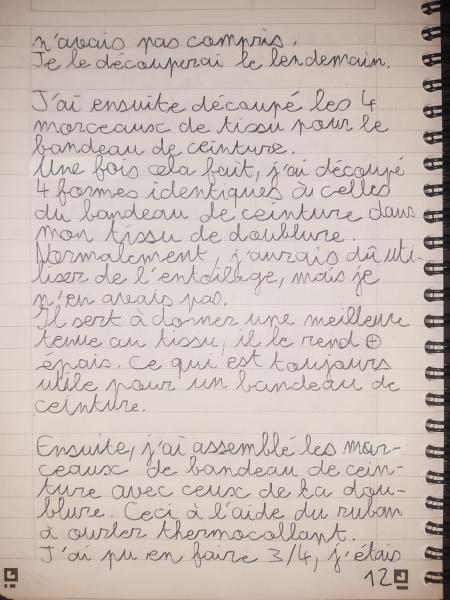 n'avais pas compris.
Je le découperai le lendemain.
J'ai ensuite découpé les 4
morceaux de tissu pour le
bandeau de ceinture.
Une fois cela fait, j'ai découpé
4 formes identiques à celles
du bandeau de ceinture dans
mon tissu de doublure.
Normalement, j'aurais dû uti-
liser de l'entoilage, mais je
n'en avais pas.
Il sert à donner une meilleure
tenue au tissu, il le rend ⊕
épais. Ce qui est toujours
utile pour un bandeau de
ceinture.
Ensuite, j'ai assemblé les mor-
ceaux de bandeau de cein-
ture avec ceux de la dou-
blure. Ceci à l'aide du ruban
à ourler thermocollant.
J'ai pu en faire 3/4, j'étais
12